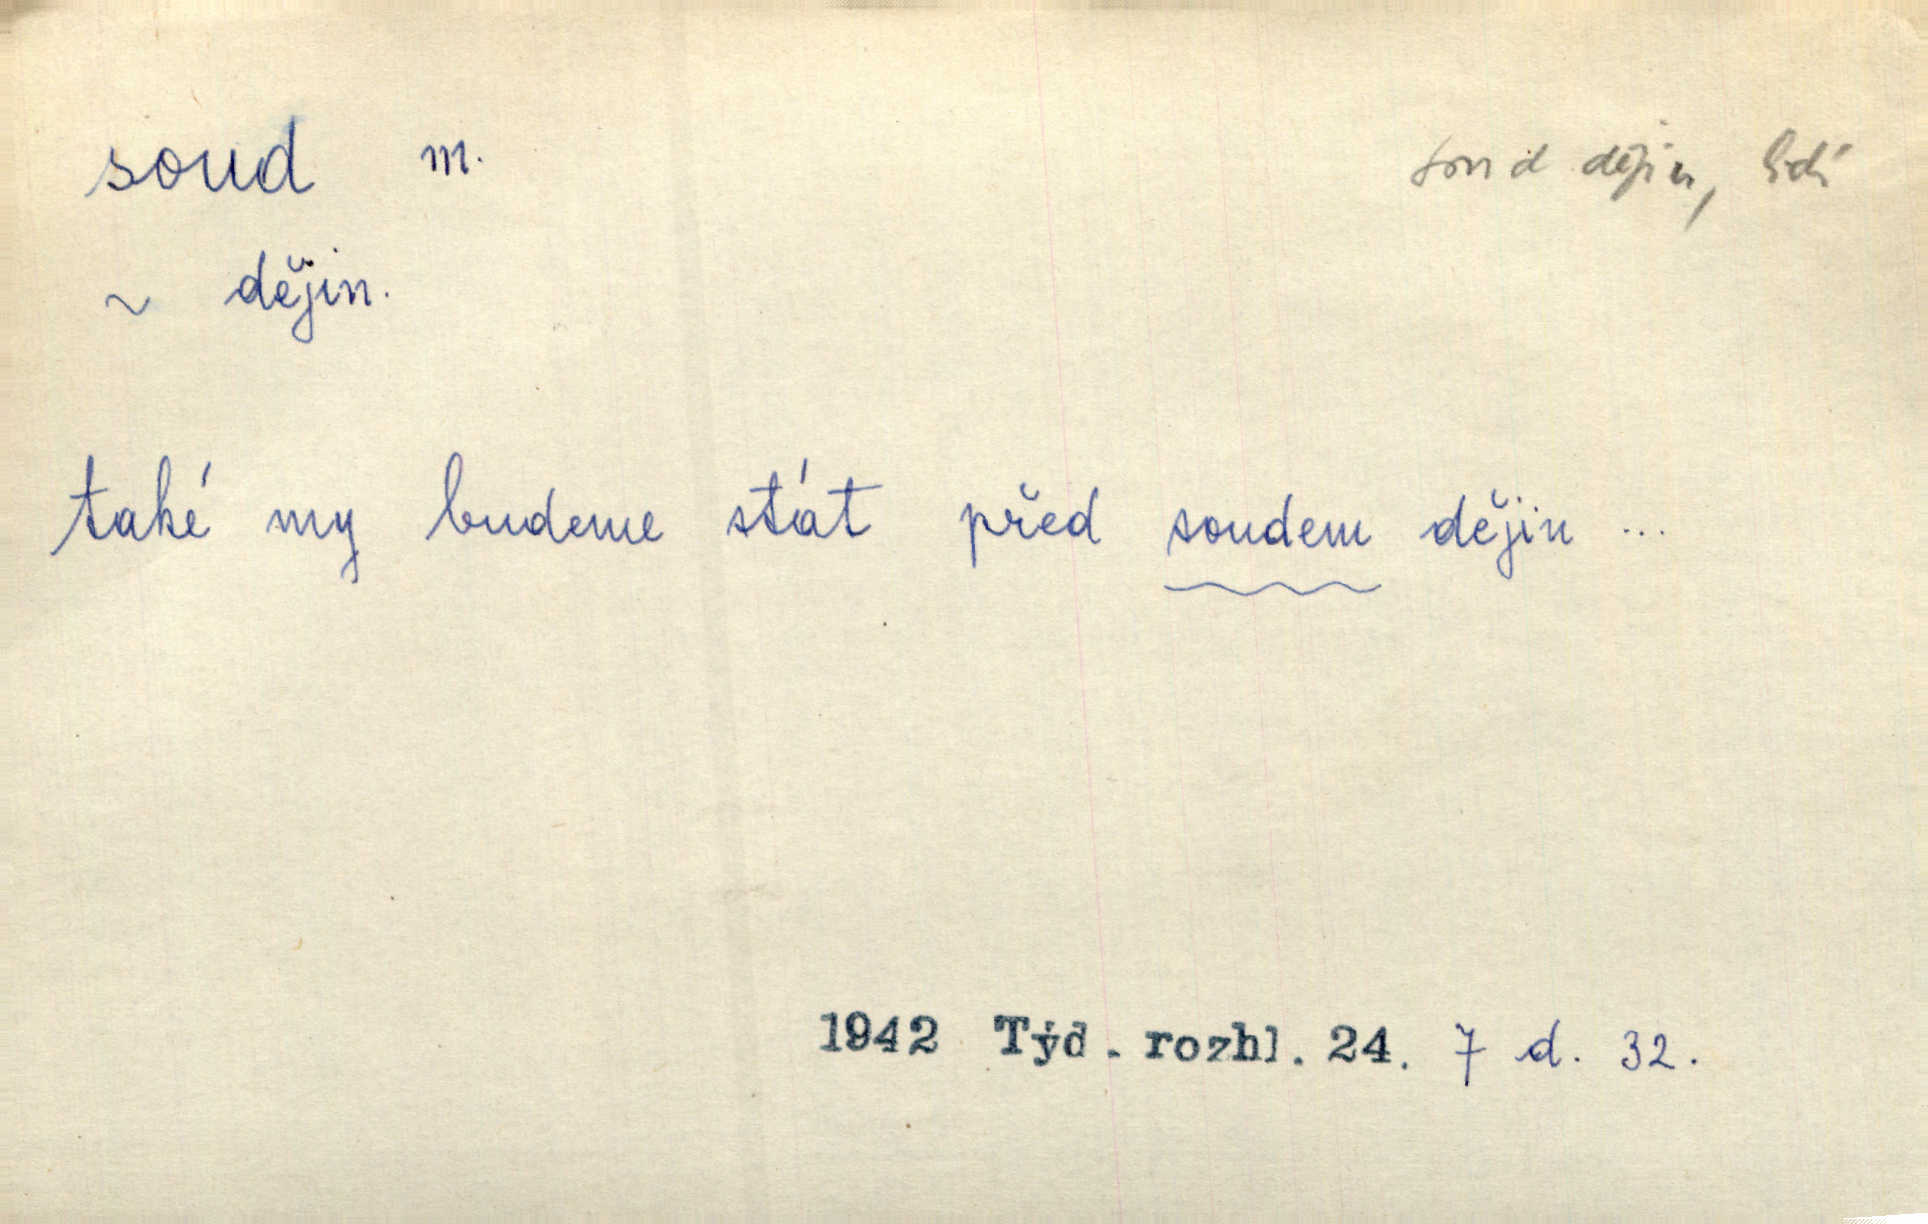 soud m.
soud dějin, lidí
~ dějin.
také my budeme stát před soudem dějin ...
1942 Týd. rozhl. 24. 7 d. 32.